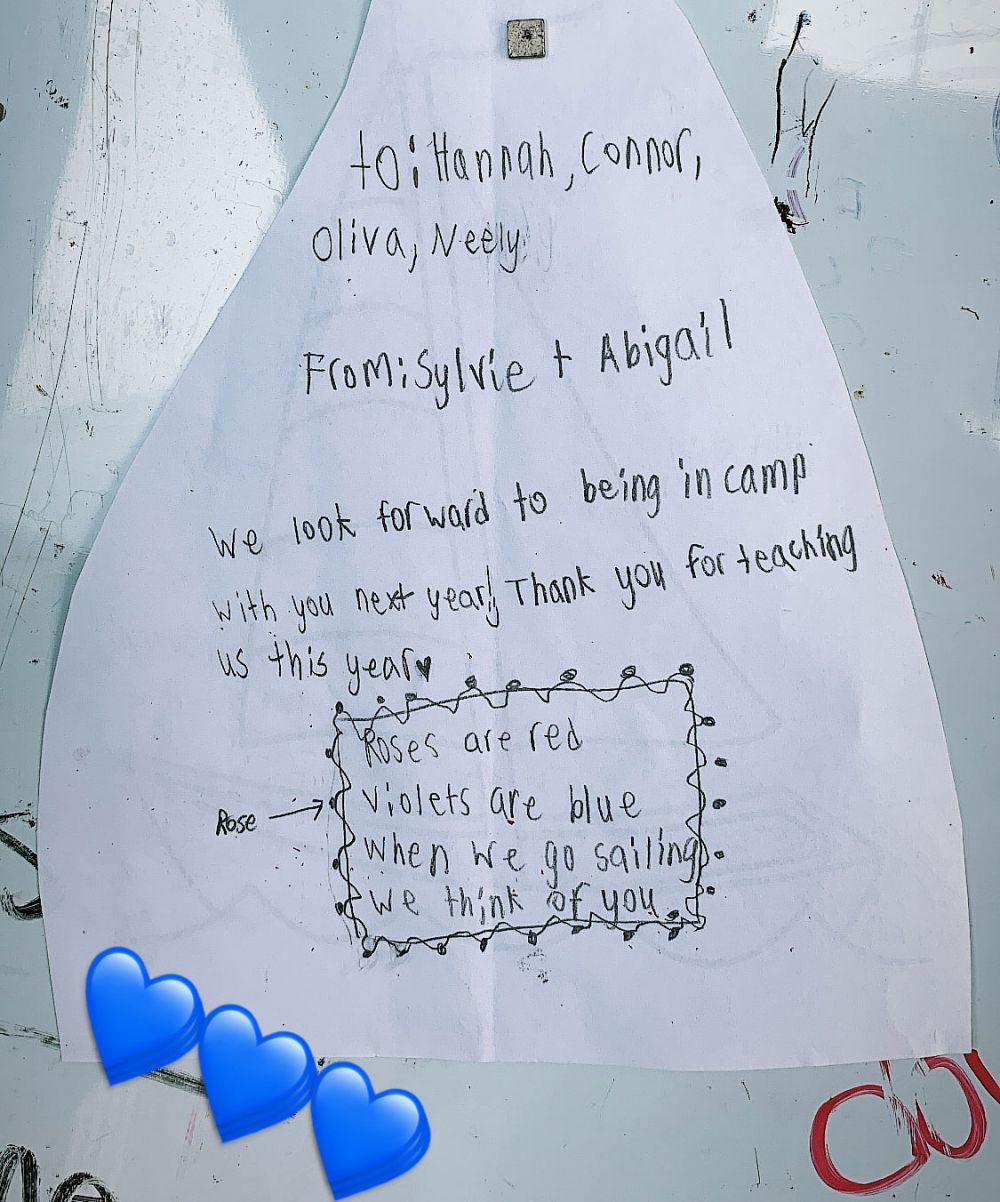 to: Hannah, Connor,
Oliva, Neely
From: Sylvie + Abigail
We look forward to being in camp
with you next year! Thank you for teaching
us this year♥
Roses are red
Violets are blue
Rose →
when we go sailing
we think of you